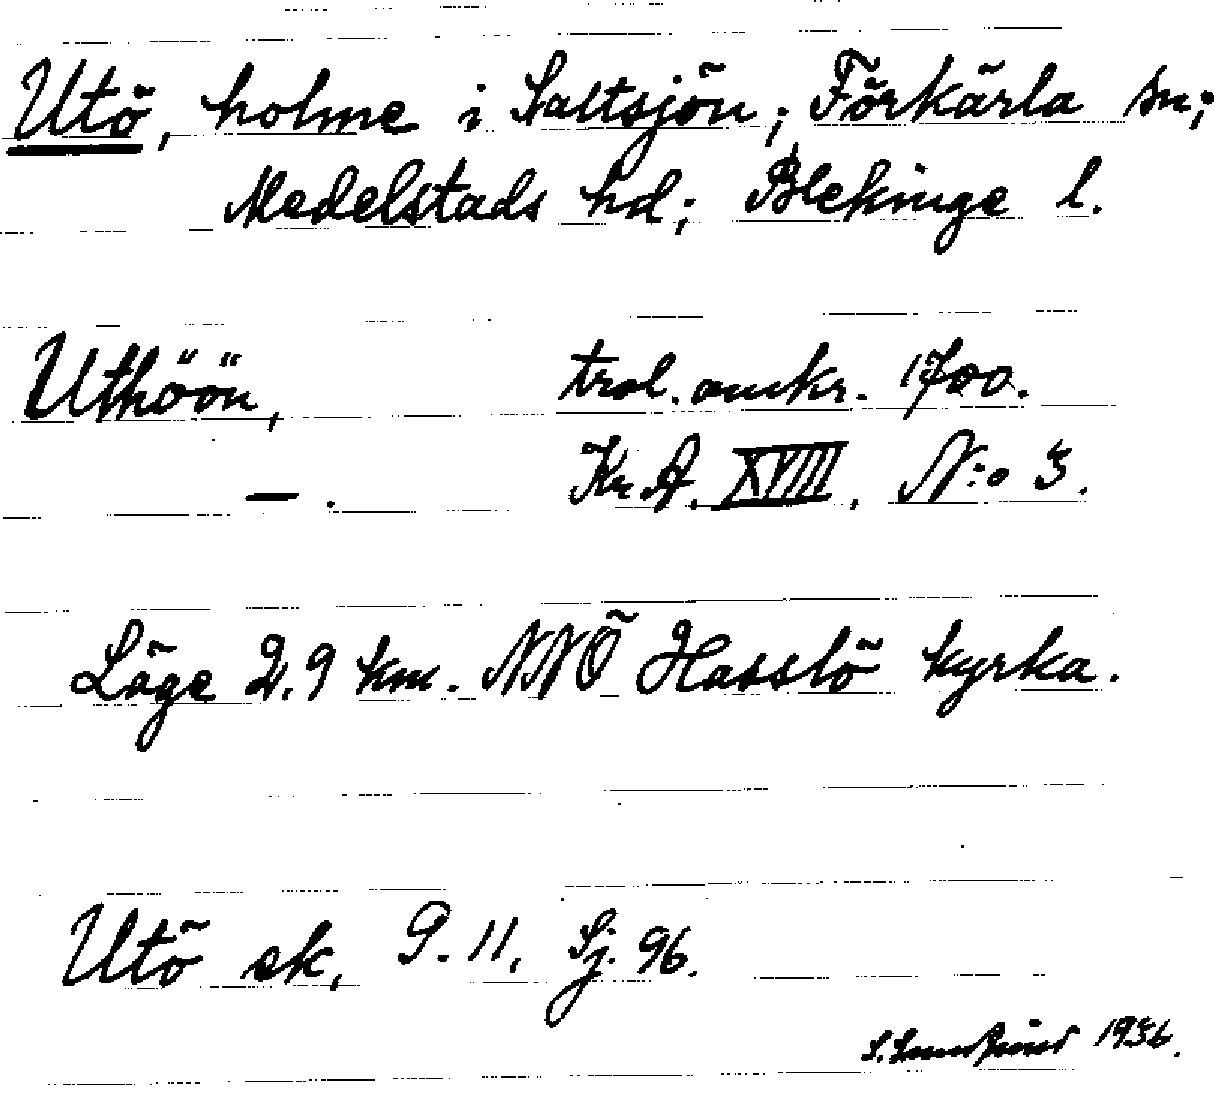 Utö, holme i Saltsjön; Förkärla sn;
Medelstads hd; Blekinge l.
Uthöön, trol. omkr. 1700.
— . Kr. A. XVIII. N:o 3.
Läge 2.9 km. NNÖ Hasslö kyrka.
Utö ek, G. 11, Sj. 96.
1936.